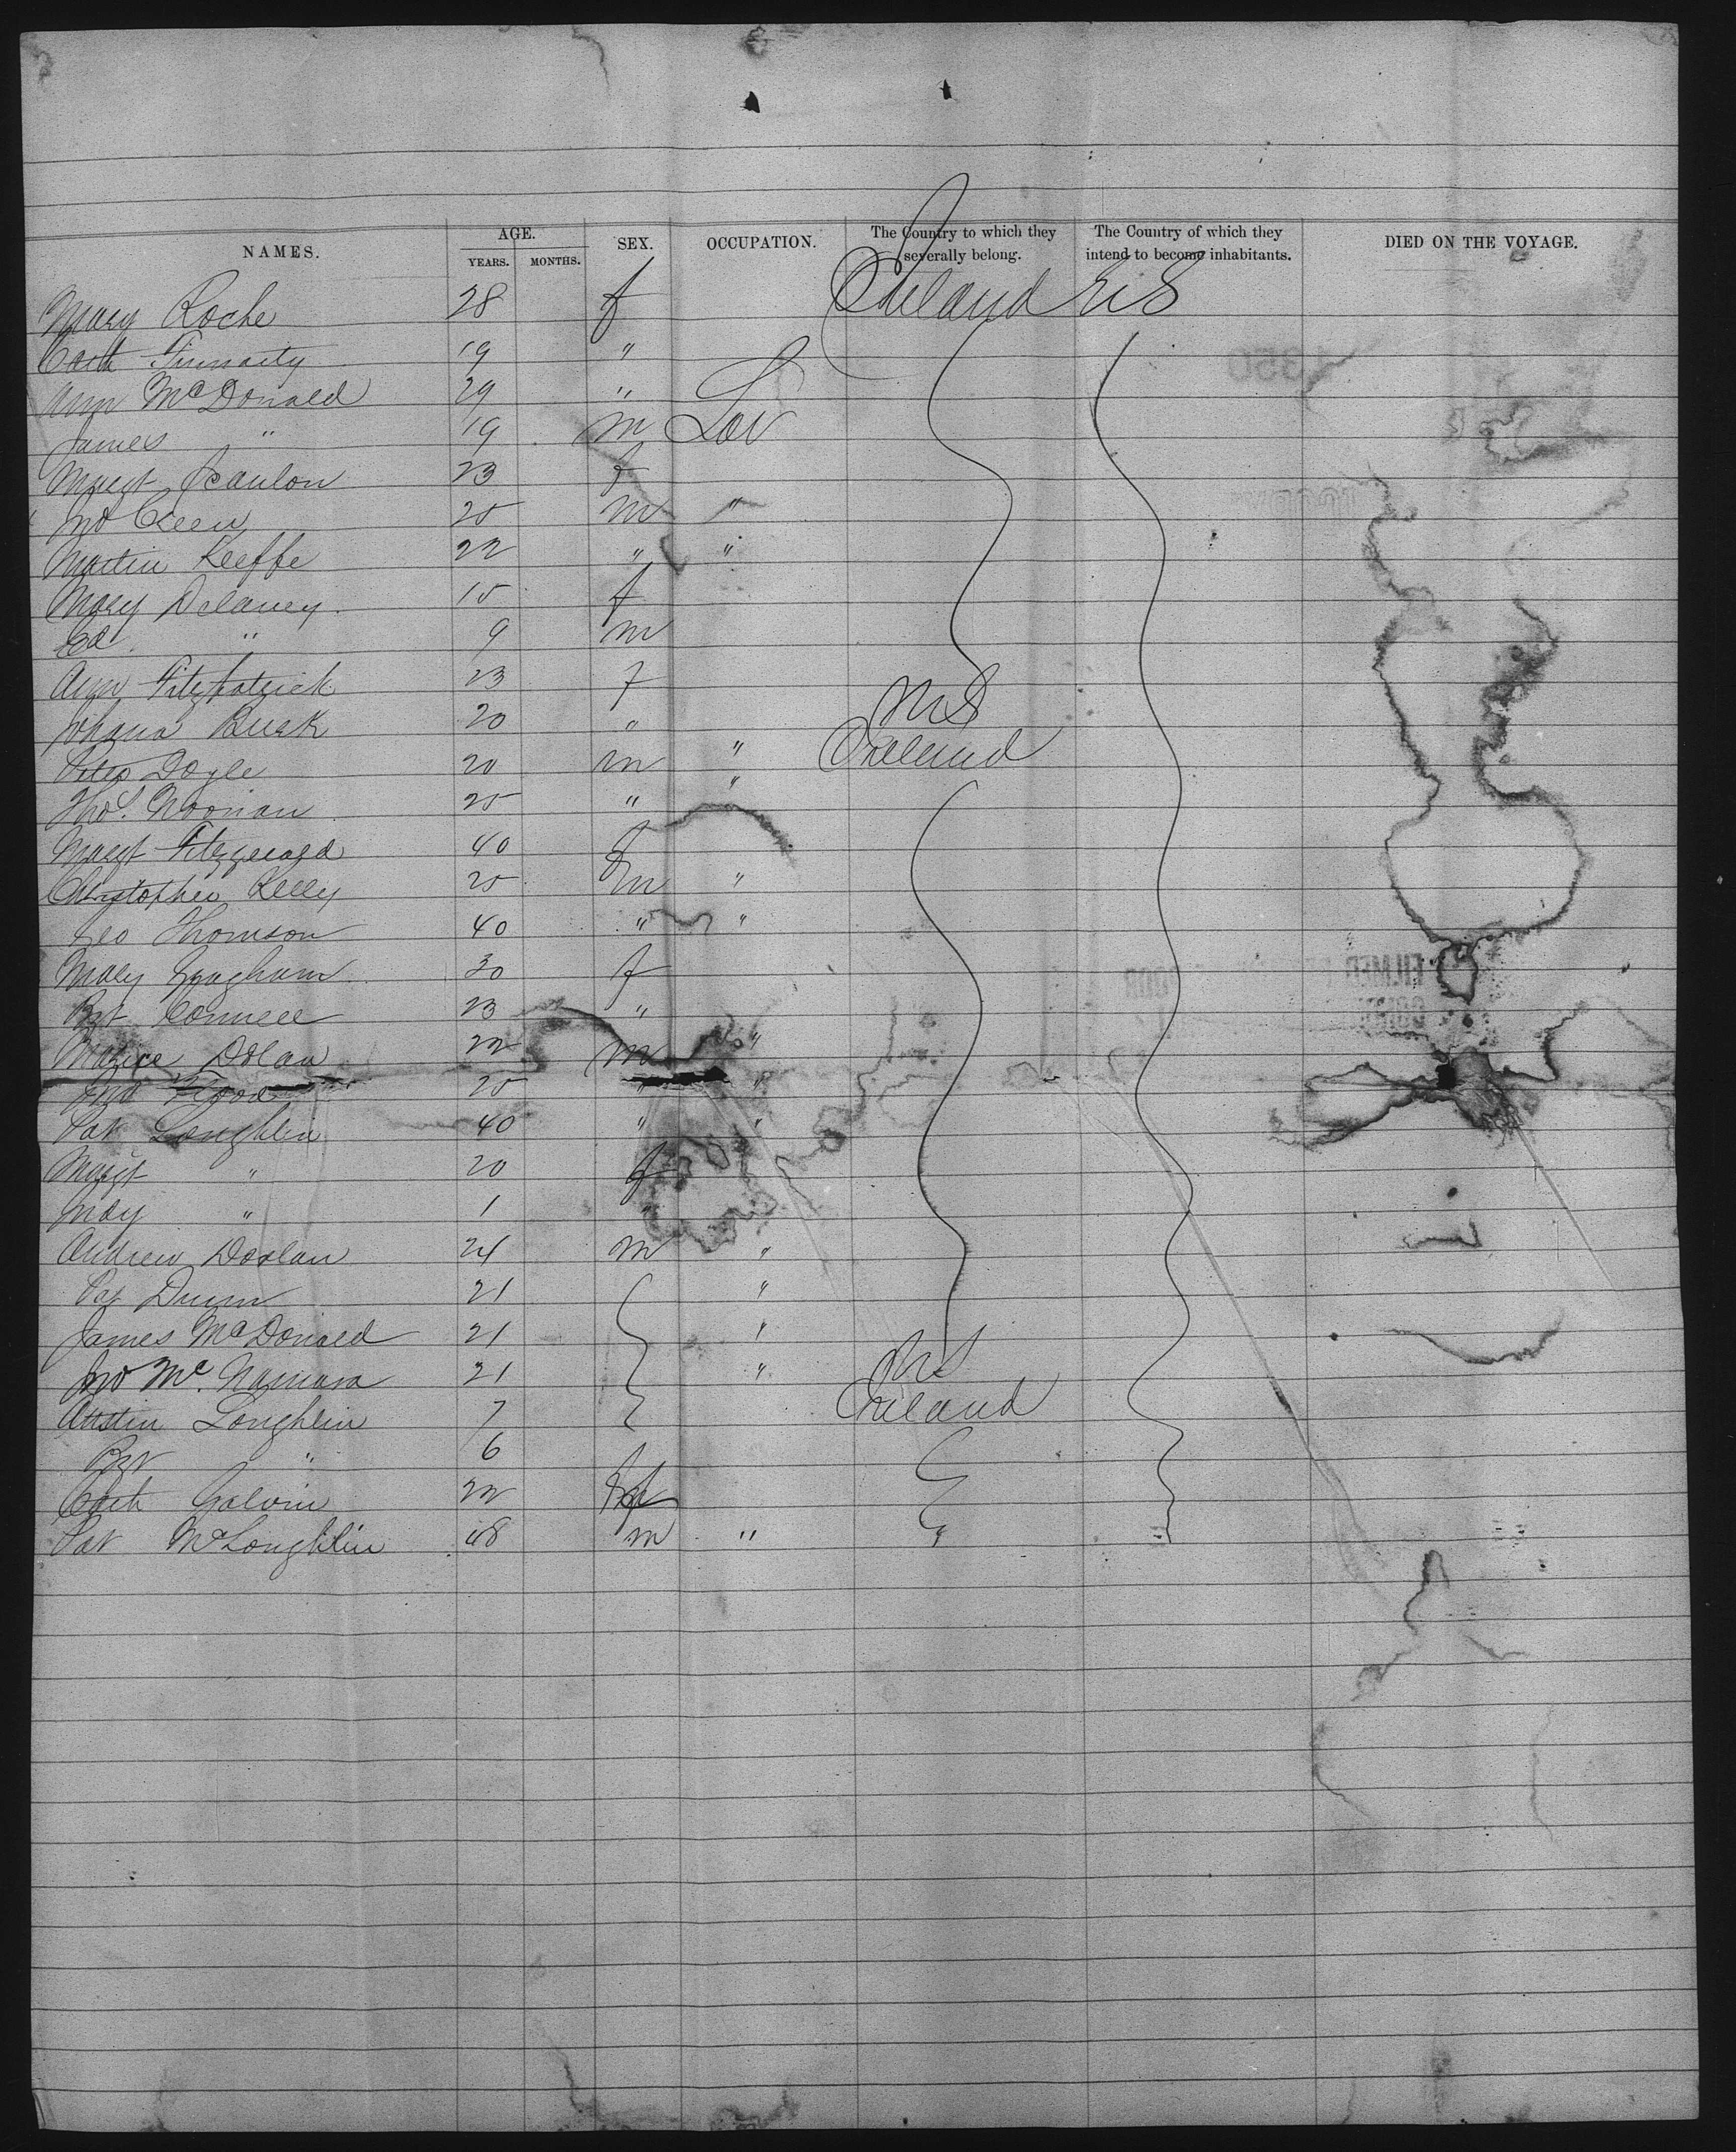 NAMES. AGE. YEARS. MONTHS. SEX. OCCUPATION. The Country to which they severally belong. The Country of which they intend to become inhabitants. DIED ON THE VOYAGE.
Mary Roche 28 f Ireland US
Cath 19 "
Ann McDonald 29 "
James " 19 m Lab
Margt Scanlon 23 f
Jno 25 m "
Martin Keeffe 22 " "
Mary Delaney 15 f
Ed " 9 m
Ann Fitzpatrick 23 f
Johana 20 " US
Peter Doyle 20 m " Ireland
Thos. Noonan 25 " "
Margt Fitzgerald 40 f
Christopher Kelly 25 m "
Geo Thomson 40 " "
Mary 30 f
Bgt Connell 23 "
Dolan 22 m "
Jno Flood 25 " "
Pat Loughlin 40 " "
Margt " 20 f
May " 1 "
Andrew 24 m "
Pat Dunn 21 "
James McDonald 21 "
Jno Mc. Namara 21 " US
Austin Loughlin 7 Ireland
" 6
Cath Galvin 22 f
Pat McLoughlin 48 m " "